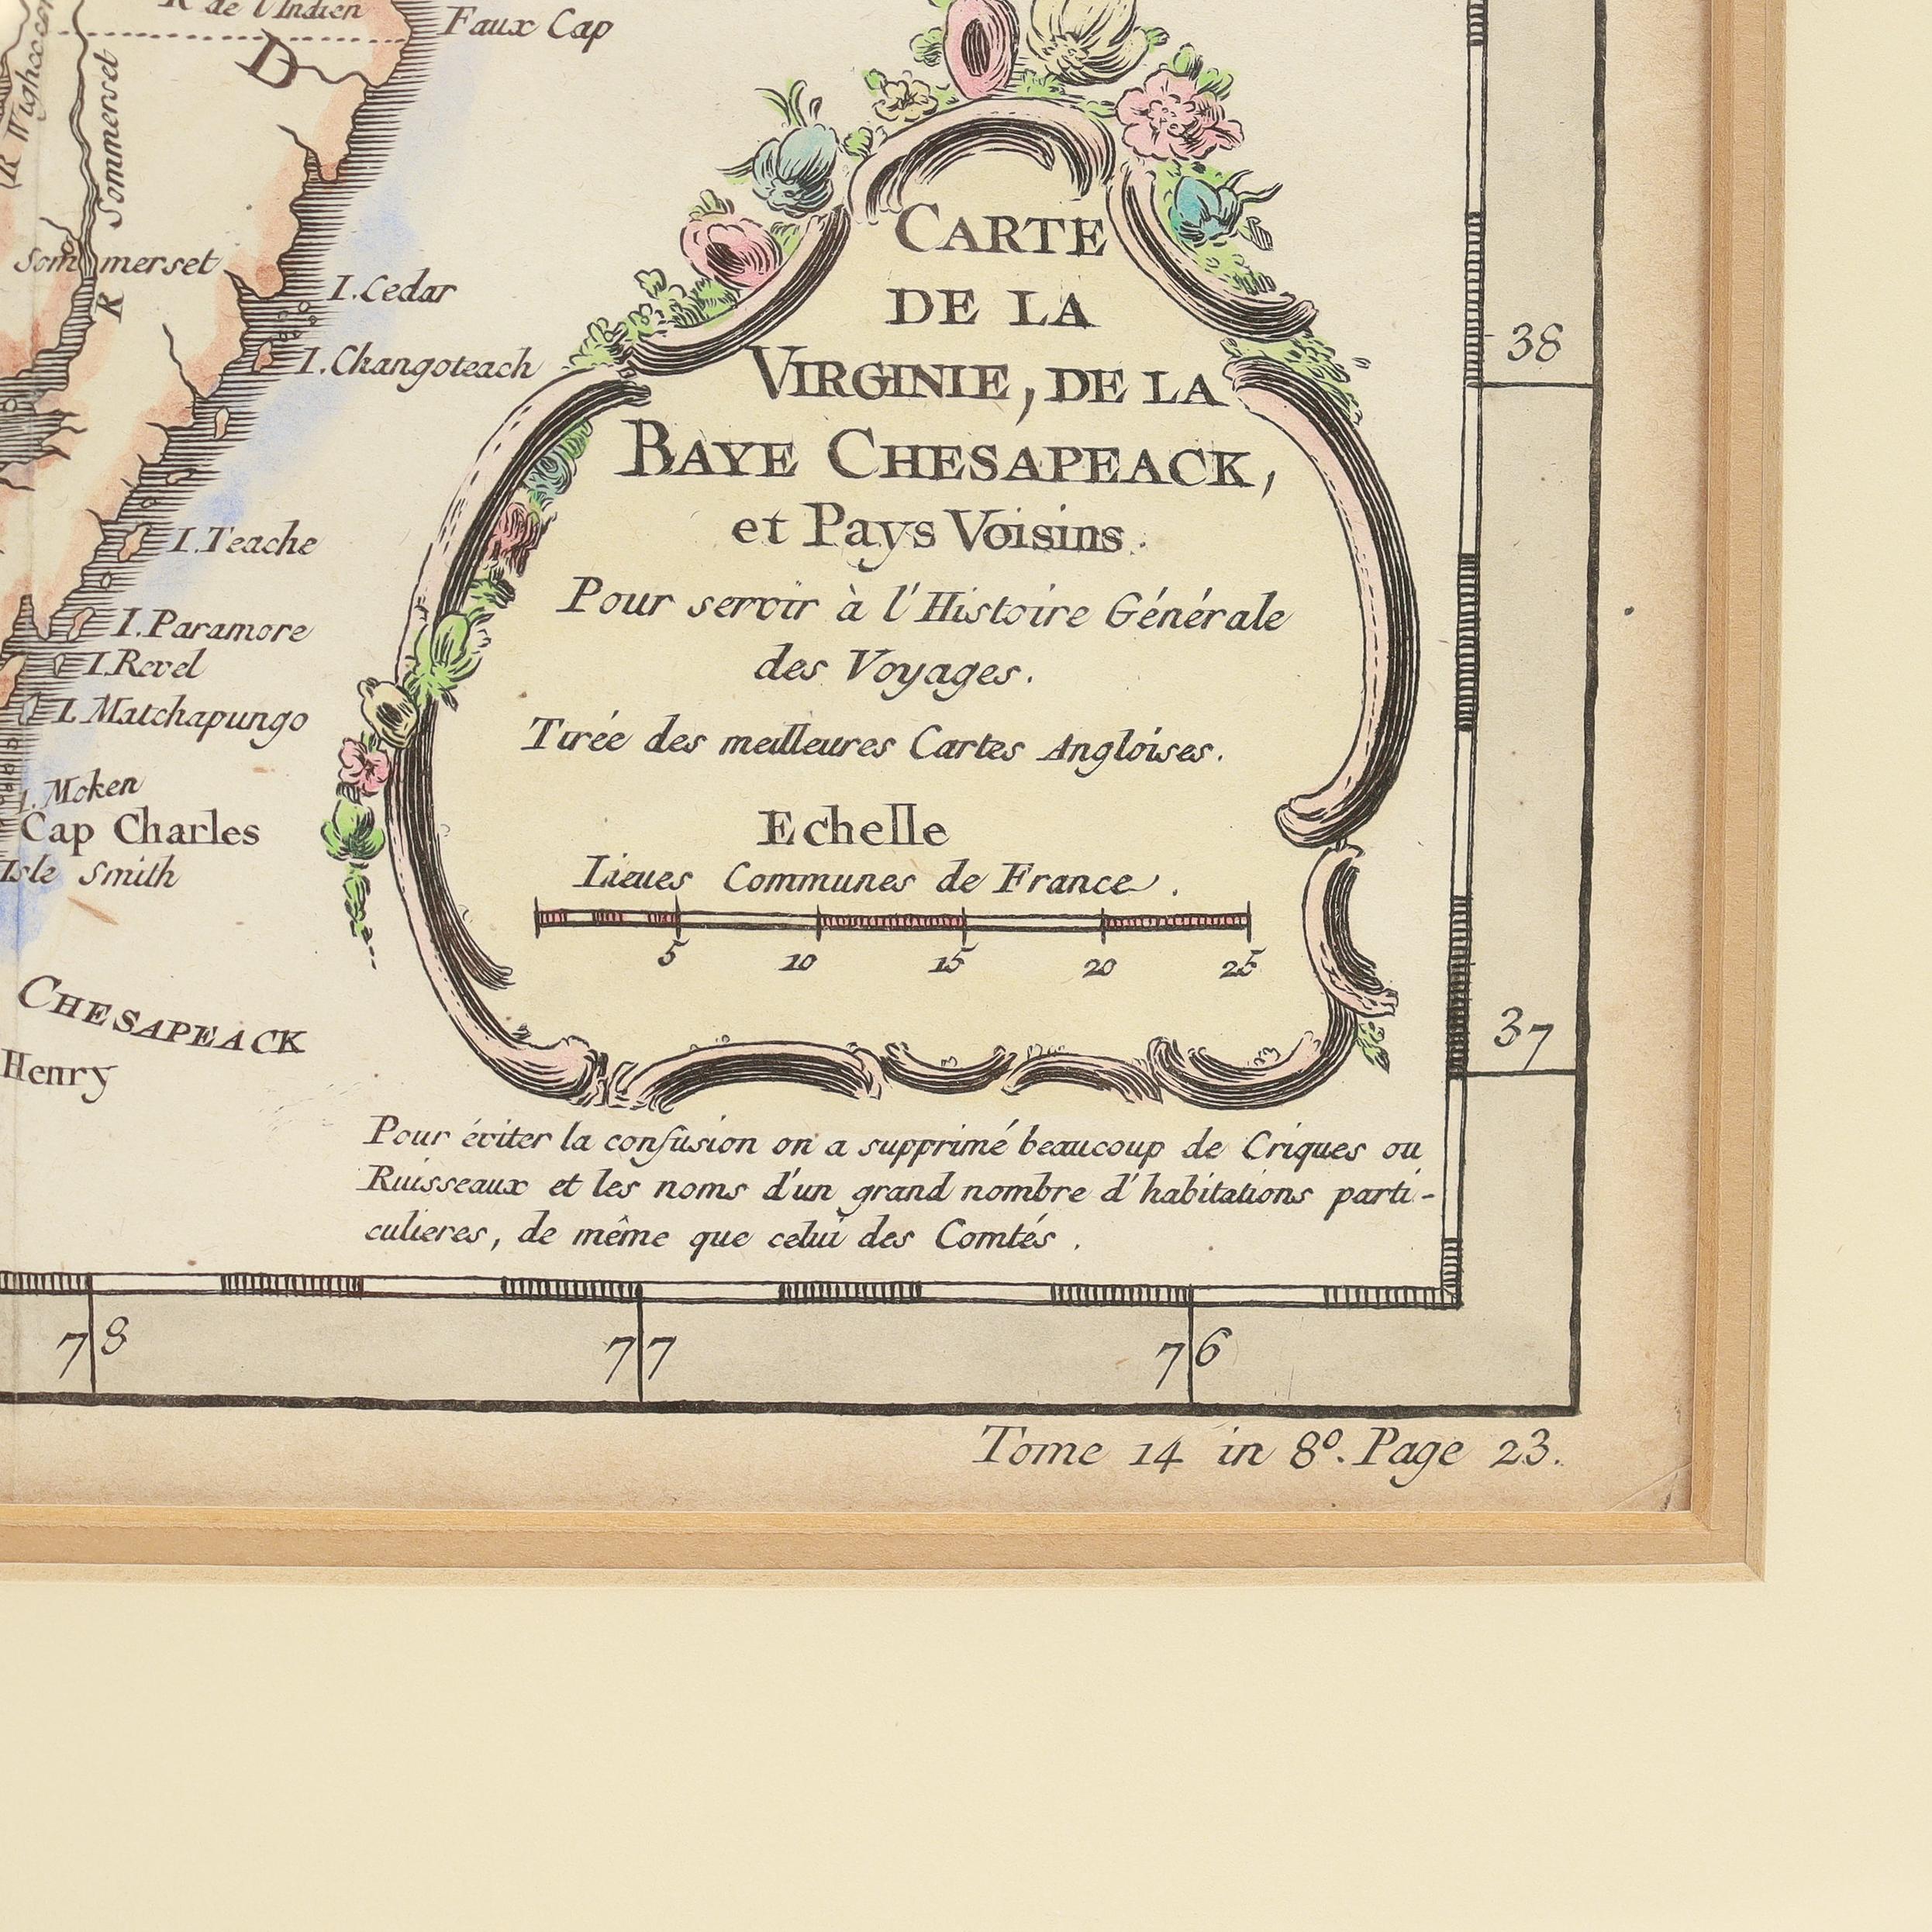 R de l'Indien
Faux Cap
D
R Wighcocom
Sommerset
R
Sommerset
I. Cedar
I. Changoteach
I. Teache
I. Paramore
I. Revel
I. Matchapungo
I. Moken
Cap Charles
Isle Smith
CHESAPEACK
Henry
CARTE
DE LA
VIRGINIE, DE LA
BAYE CHESAPEACK,
et Pays Voisins.
Pour servir à l'Histoire Générale
des Voyages.
Tirée des meilleures Cartes Angloises.
Echelle
Lieues Communes de France.
5 10 15 20 25
Pour éviter la confusion on a supprimé beaucoup de Criques ou
Ruisseaux et les noms d'un grand nombre d'habitations parti-
culieres, de même que celui des Comtés.
38
37
78 77 76
Tome 14 in 8º. Page 23.